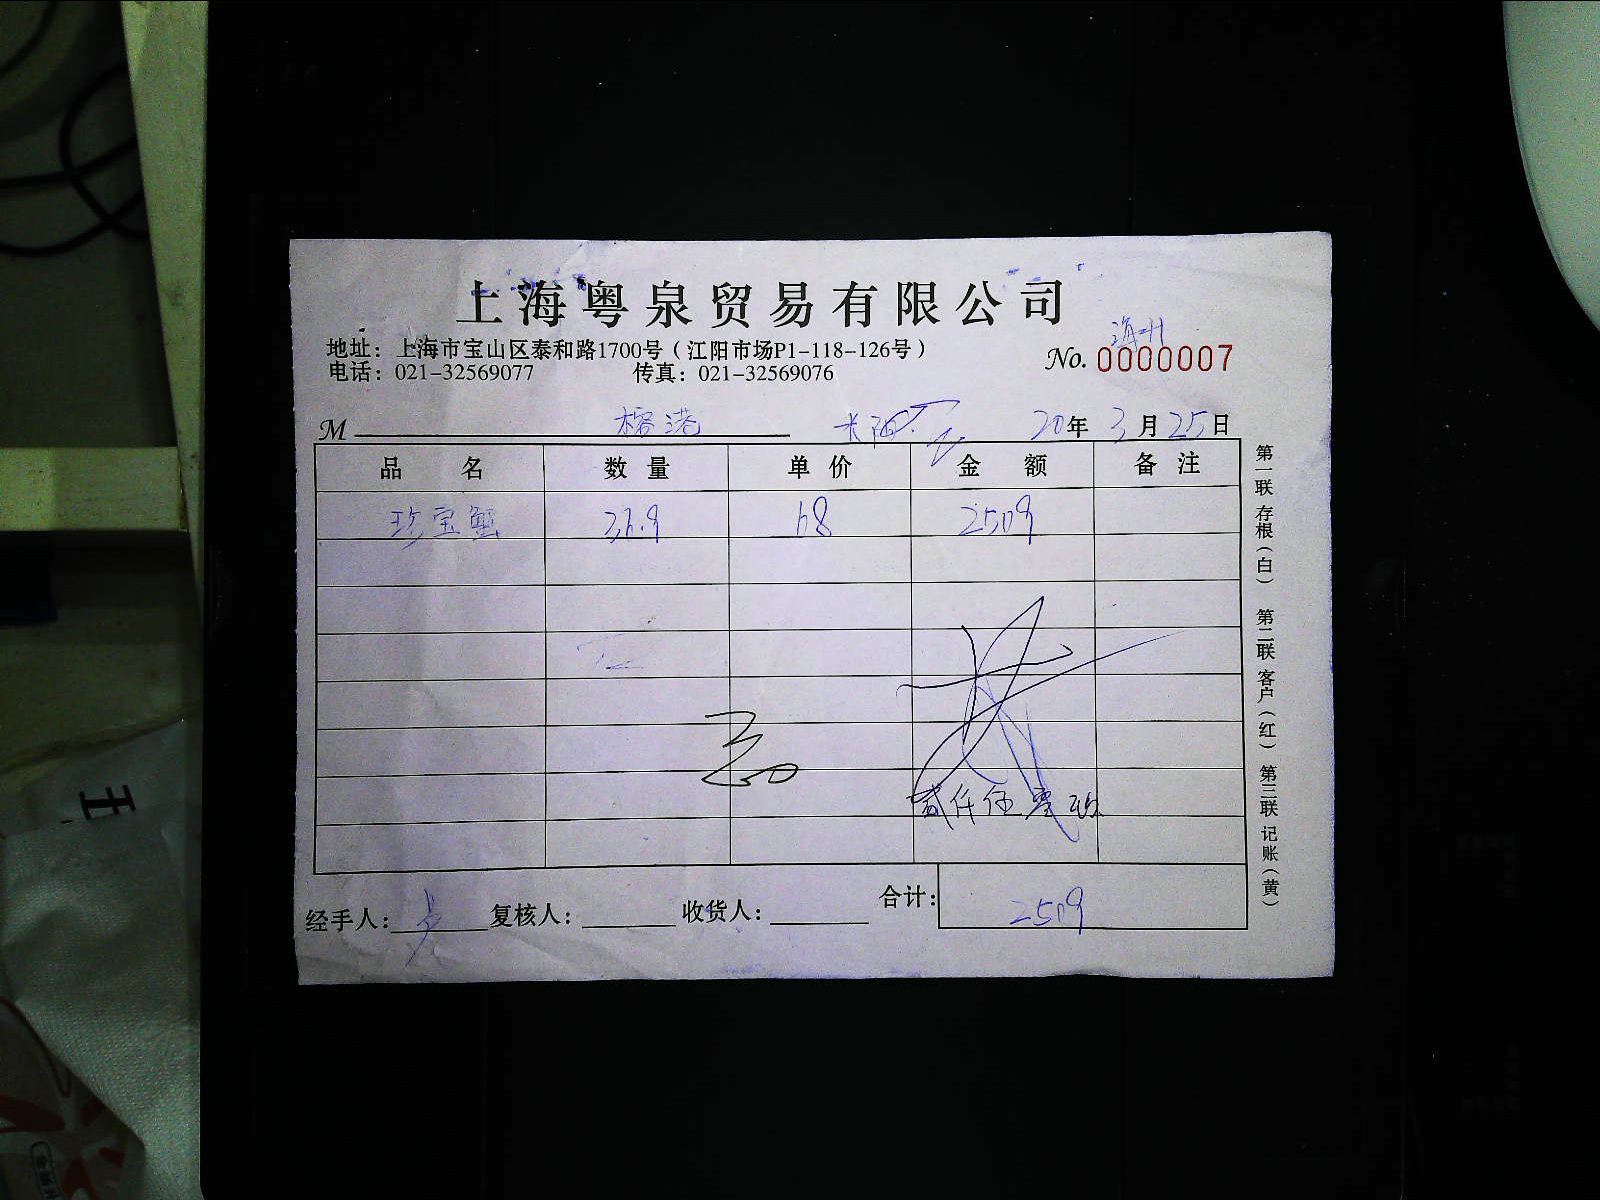 上海粤泉贸易有限公司
地址：上海市宝山区泰和路1700号（江阳市场P1-118-126号）
电话：021-32569077 传真：021-32569076
No. 0000007
M 榕港 20年3月25日
品名 数量 单价 金额 备注
珍宝蟹 36.9 68 2509
贰仟伍零玖
经手人： 复核人： 收货人： 合计：2509
第一联 存根（白） 第二联 客户（红） 第三联 记账（黄）